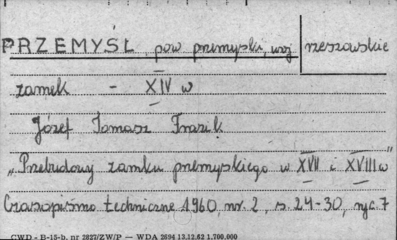 PRZEMYŚL, pow przemyski, woj rzeszowskie
zamek - XIV w
Józef Tomasz Frazik
„Przebudowy zamku przemyskiego w XVII i XVIII w"
Czasopismo techniczne 1960, nr. 2, s. 24-30, ryc. 7
CWD - B-15-b. nr 2827/ZW/P — WDA 2694 13.12.62 1.700.000